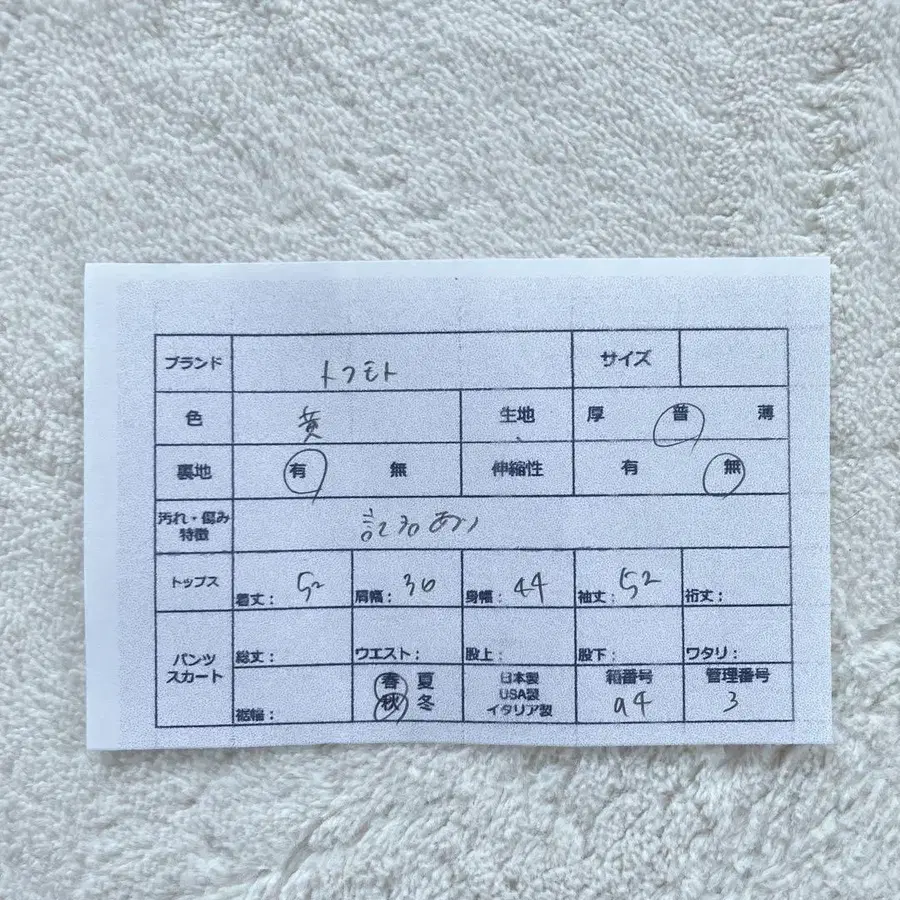 ブランド サイズ
色 黄 生地 厚 普 薄
裏地 有 無 伸縮性 有 無
汚れ・傷み
特徴
あり
トップス 着丈: 52 肩幅: 36 身幅: 44 袖丈: 52 裄丈:
パンツ
スカート
総丈: ウエスト: 股上: 股下: ワタリ:
裾幅:
春 夏
秋 冬
日本製
USA製
イタリア製
箱番号
a4
管理番号
3